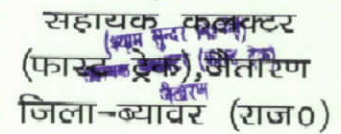 सहायक कलक्टर
(श्याम सुन्दर
(फास्ट ट्रेक),जैतारण
जैतारण
जिला-ब्यावर (राज0)